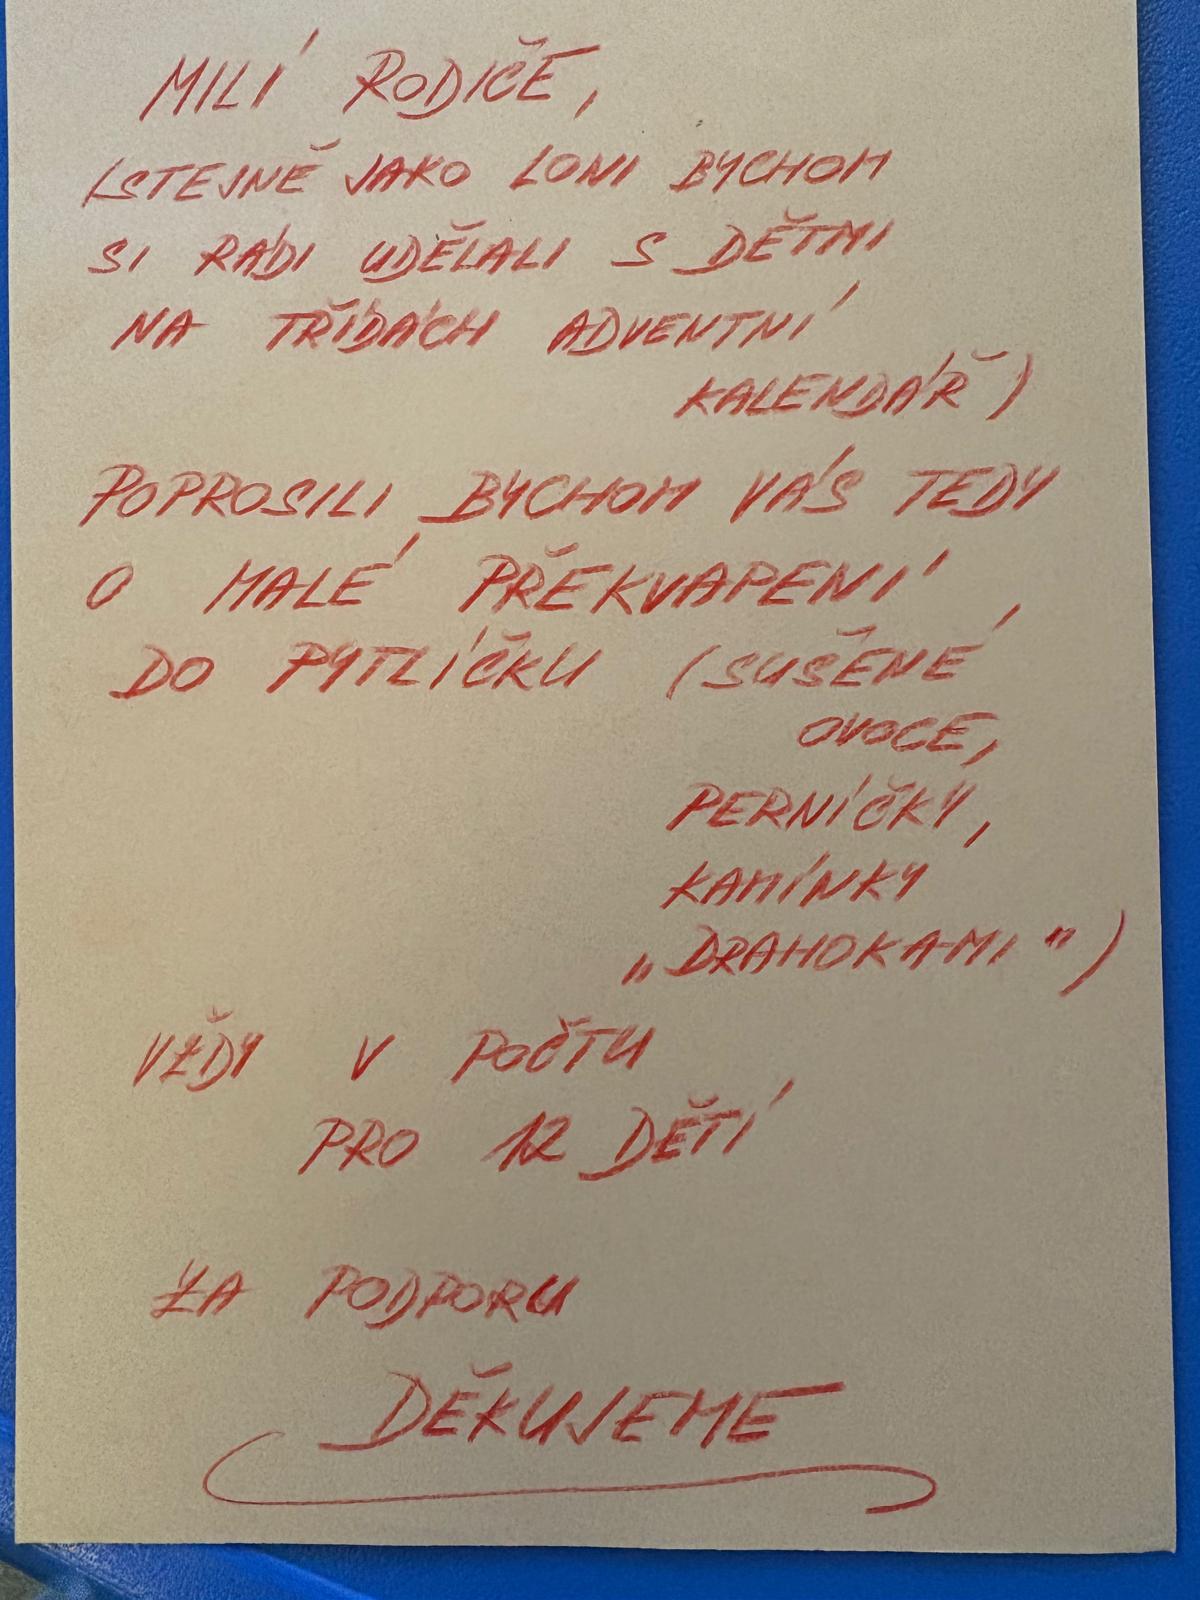 MILÍ RODIČE,
(STEJNĚ JAKO LONI BYCHOM
SI RÁDI UDĚLALI S DĚTMI
NA TŘÍDÁCH ADVENTNÍ
KALENDÁŘ)
POPROSILI BYCHOM VÁS TEDY
O MALÉ PŘEKVAPENÍ,
DO PYTLÍČKU (SUŠENÉ
OVOCE,
PERNÍČKY,
KAMÍNKY
„DRAHOKAMI")
VŽDY V POČTU
PRO 12 DĚTÍ
ZA PODPORU
DĚKUJEME